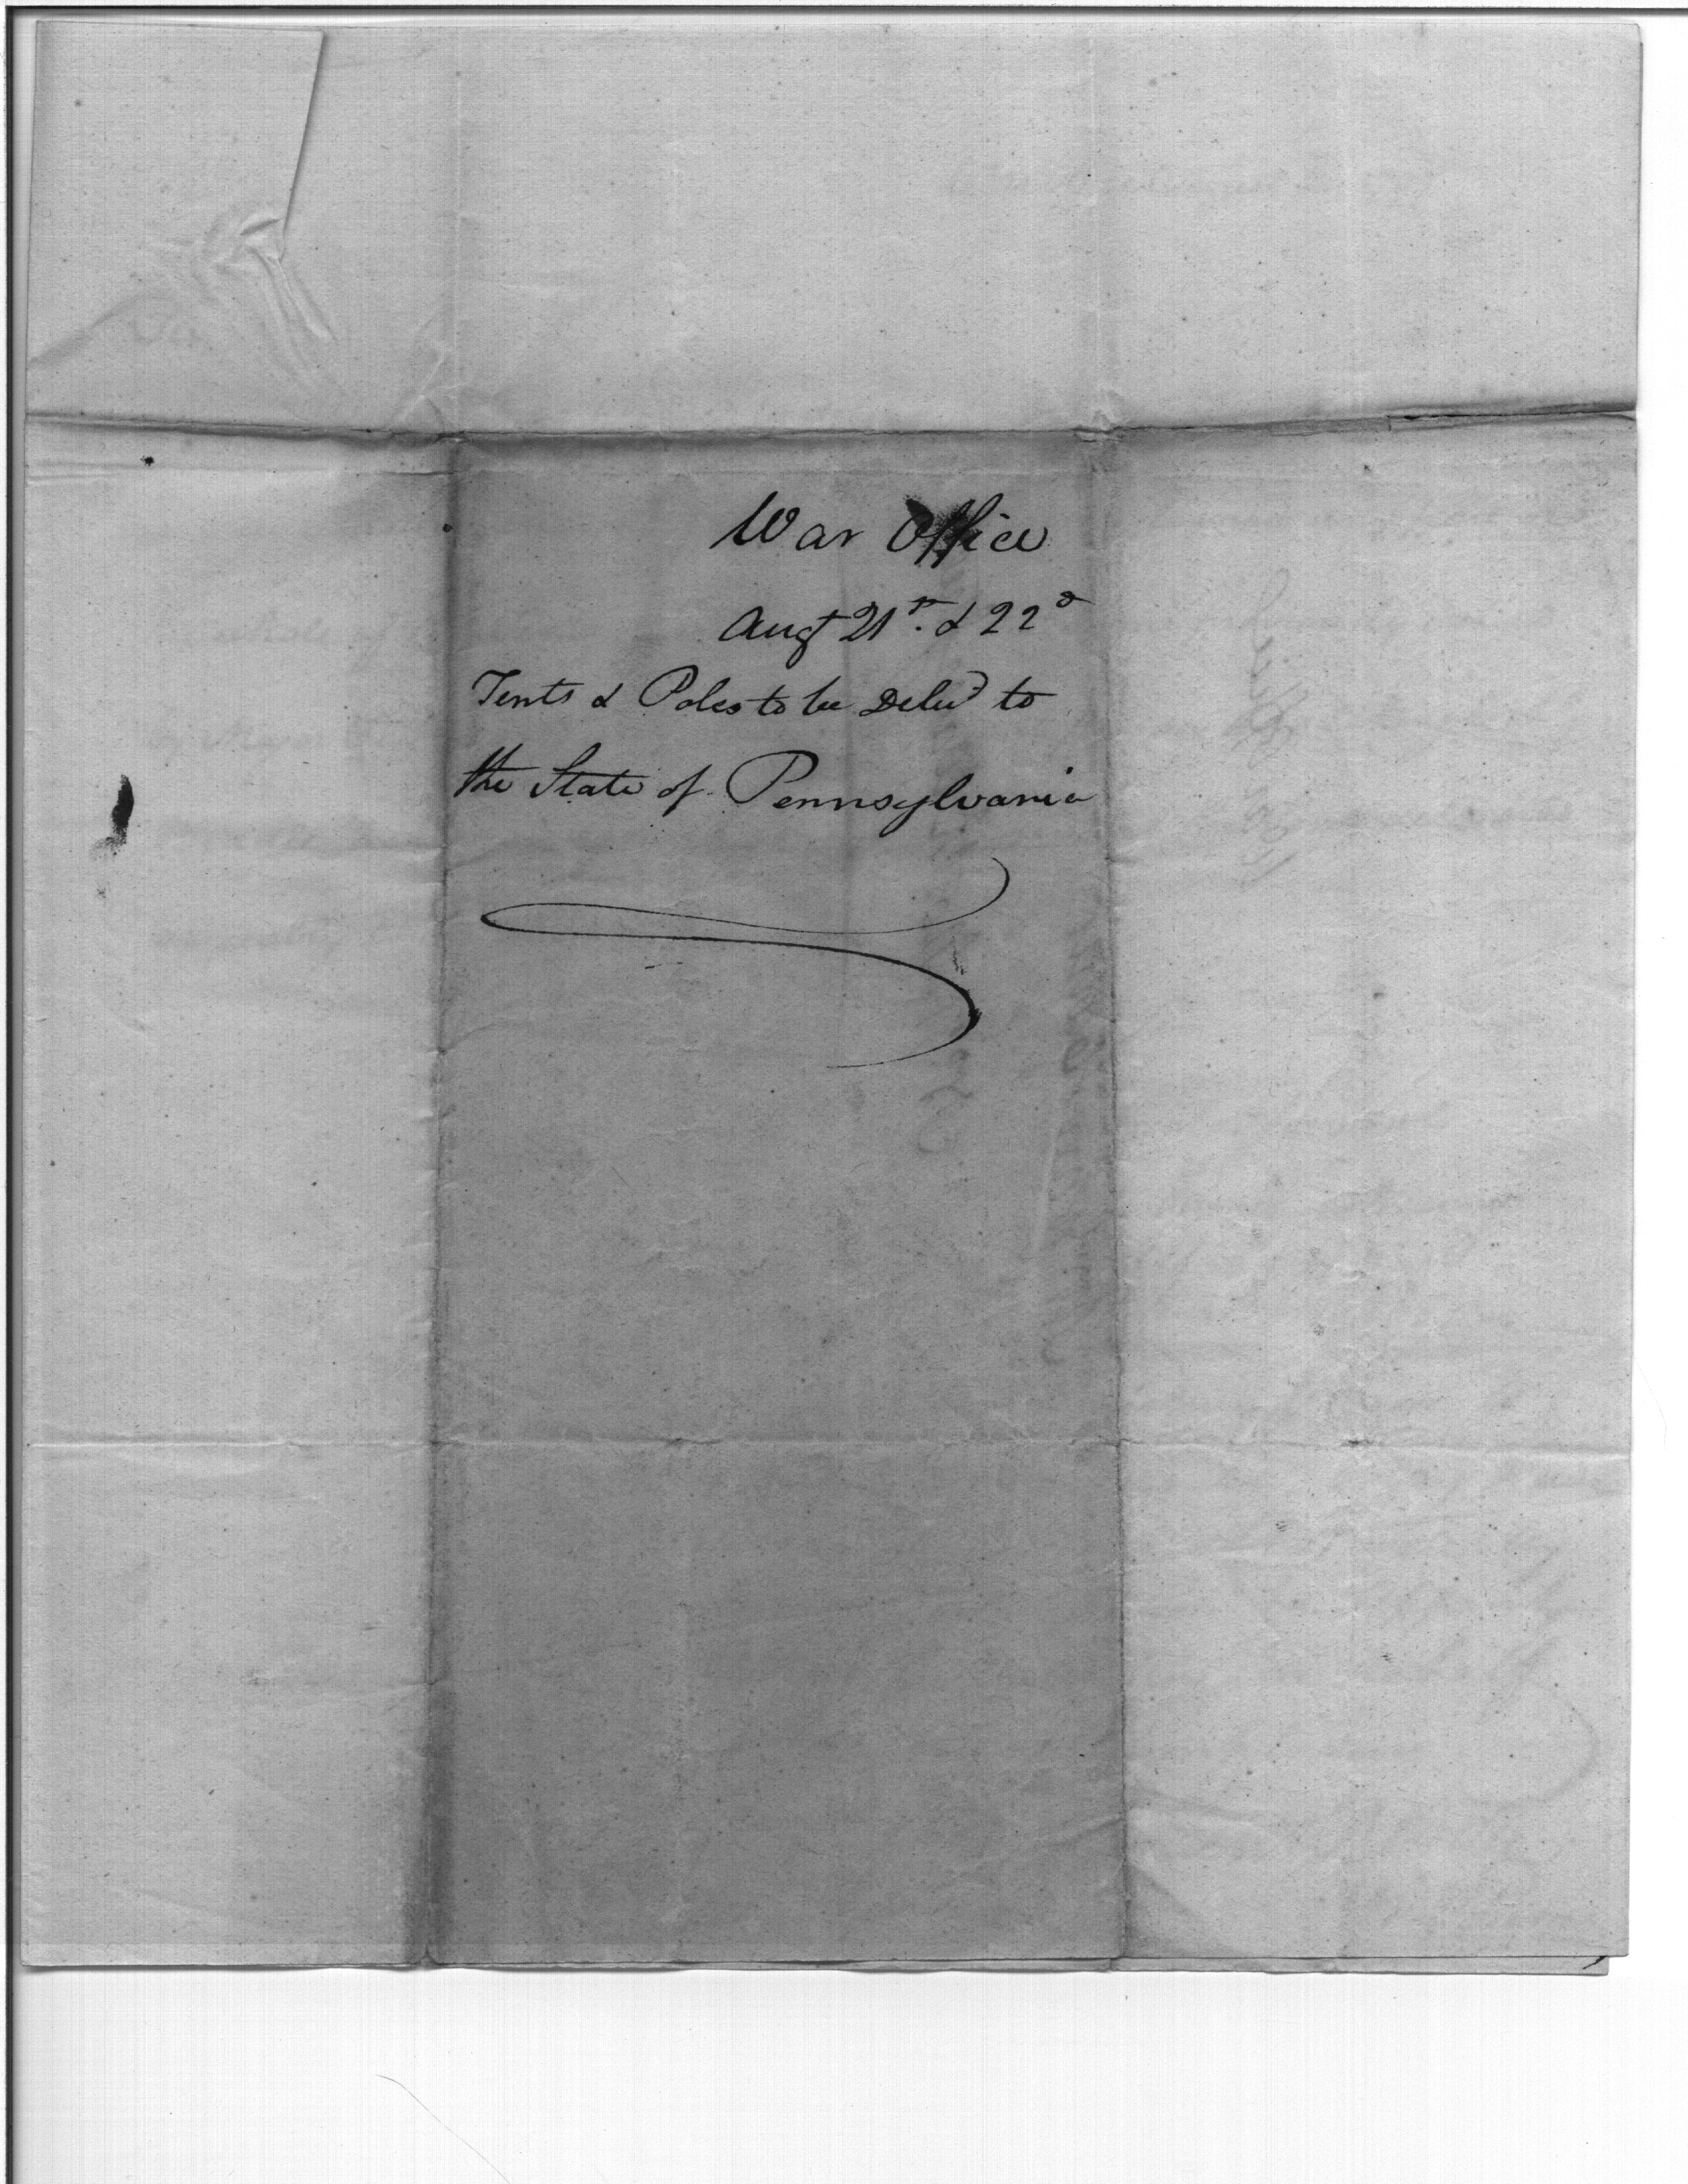 War Office
Augt 21st. & 22d
Tents & Poles to be Delivd to
the State of Pennsylvania